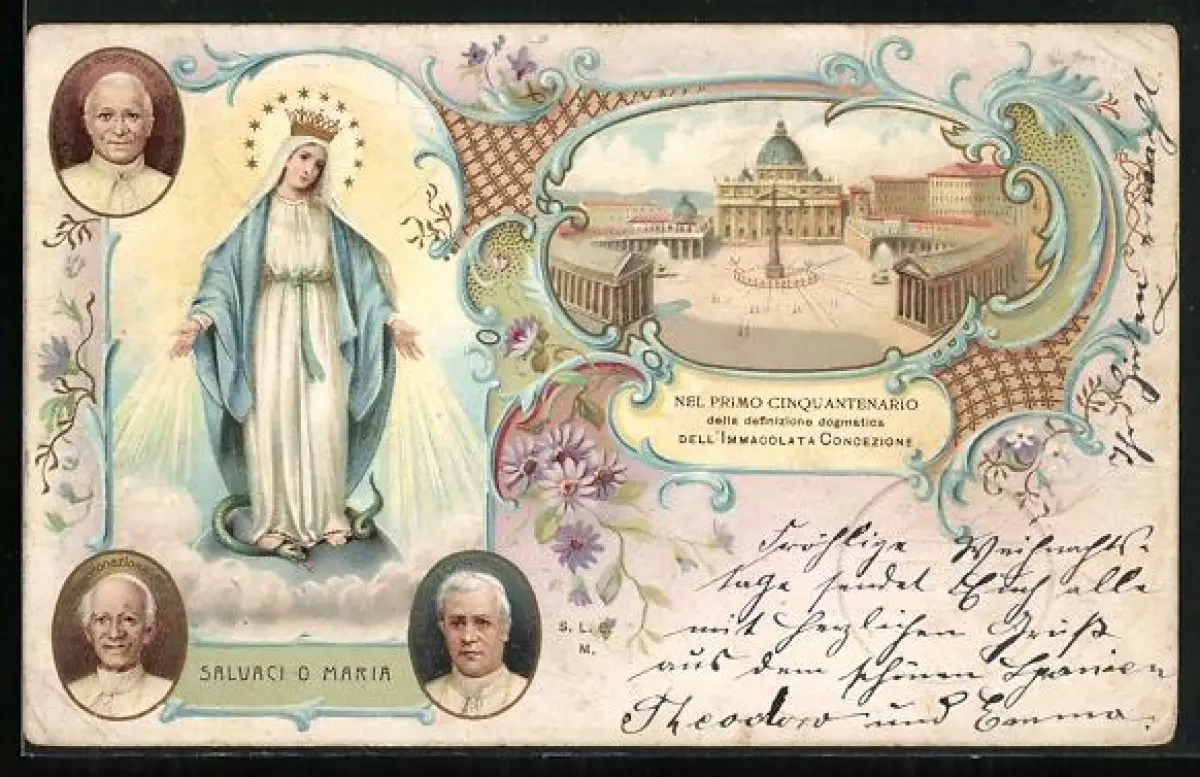 SALVACI O MARIA
NEL PRIMO CINQUANTENARIO
della definizione dogmatica
DELL'IMMACOLATA CONCEZIONE
S. L. G.
M.
Fröhlige Weihnachts-
tage sendet Euch alle
mit herzlichen Gruß
aus dem schönen Spanien
Theodoro und Emma.